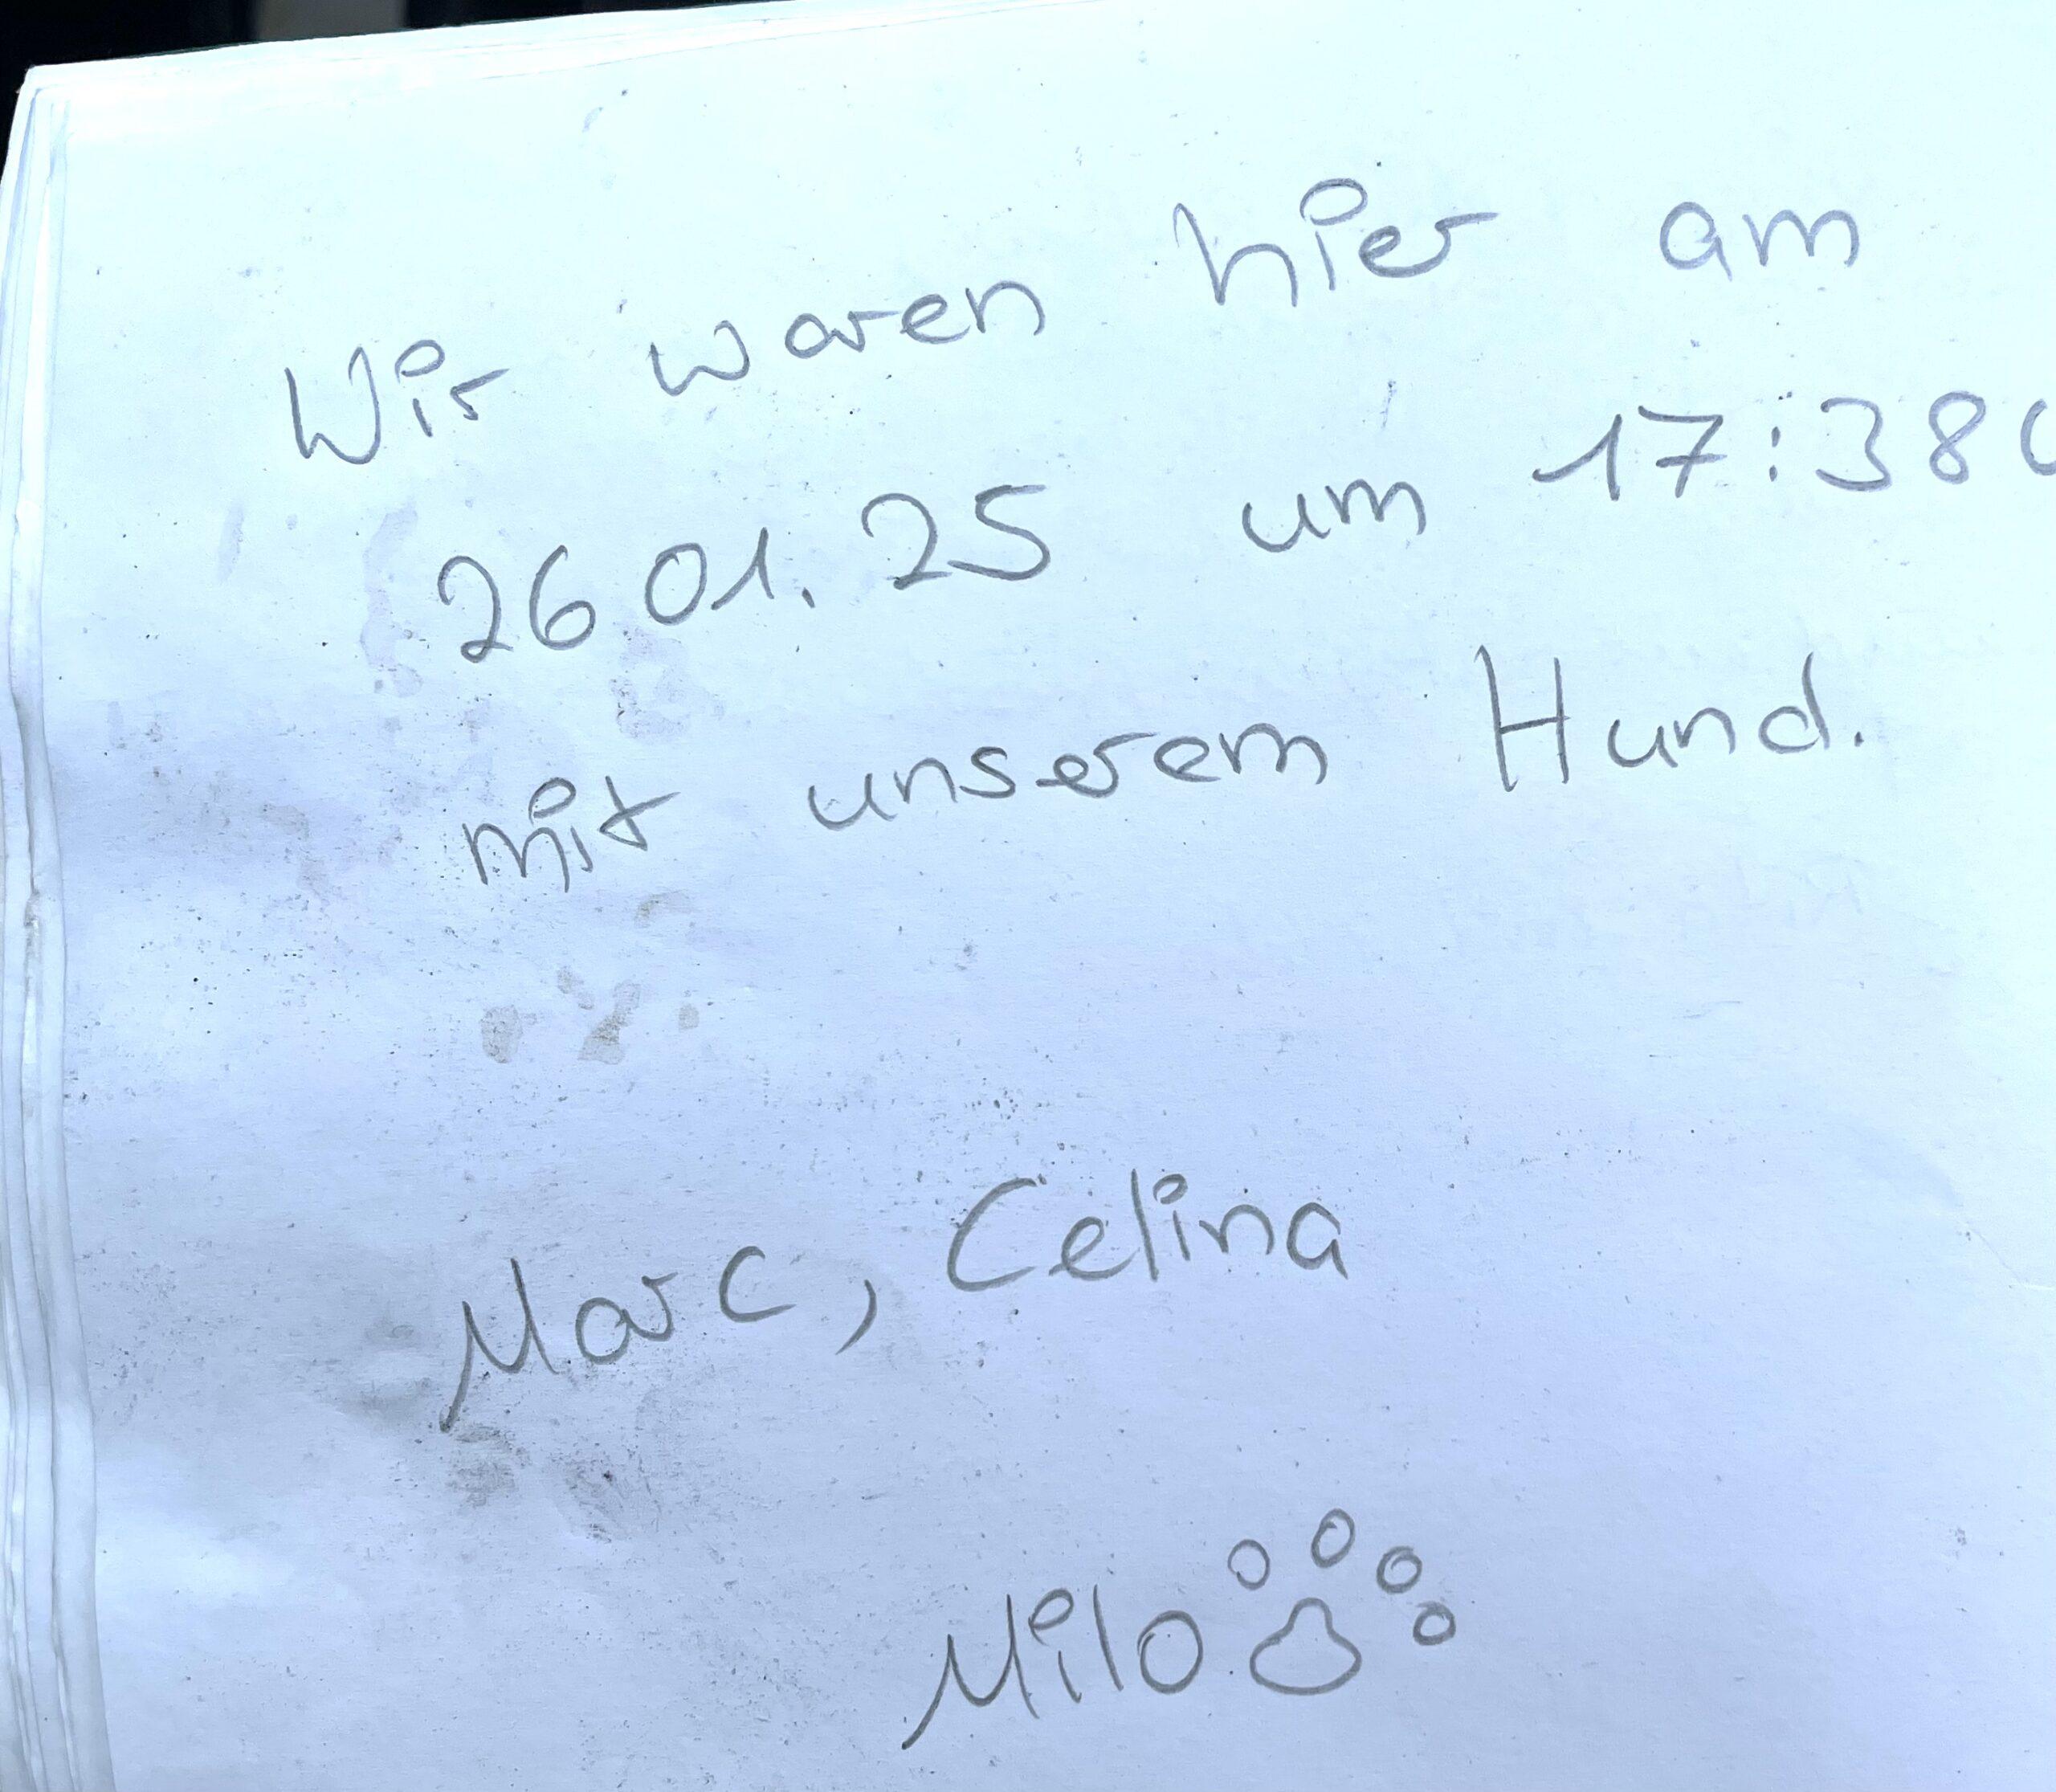 Wir waren hier am
26 01. 25 um 17:38
mit unserem Hund.
Marc, Celina
Milo